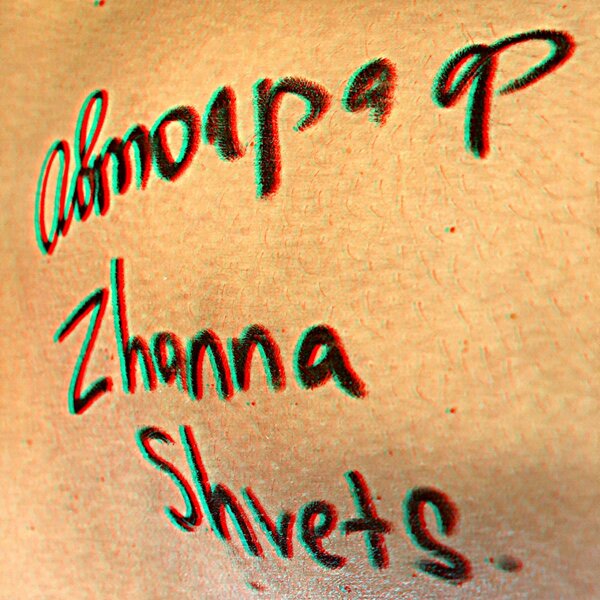 автограф
Zhanna
Shvets.